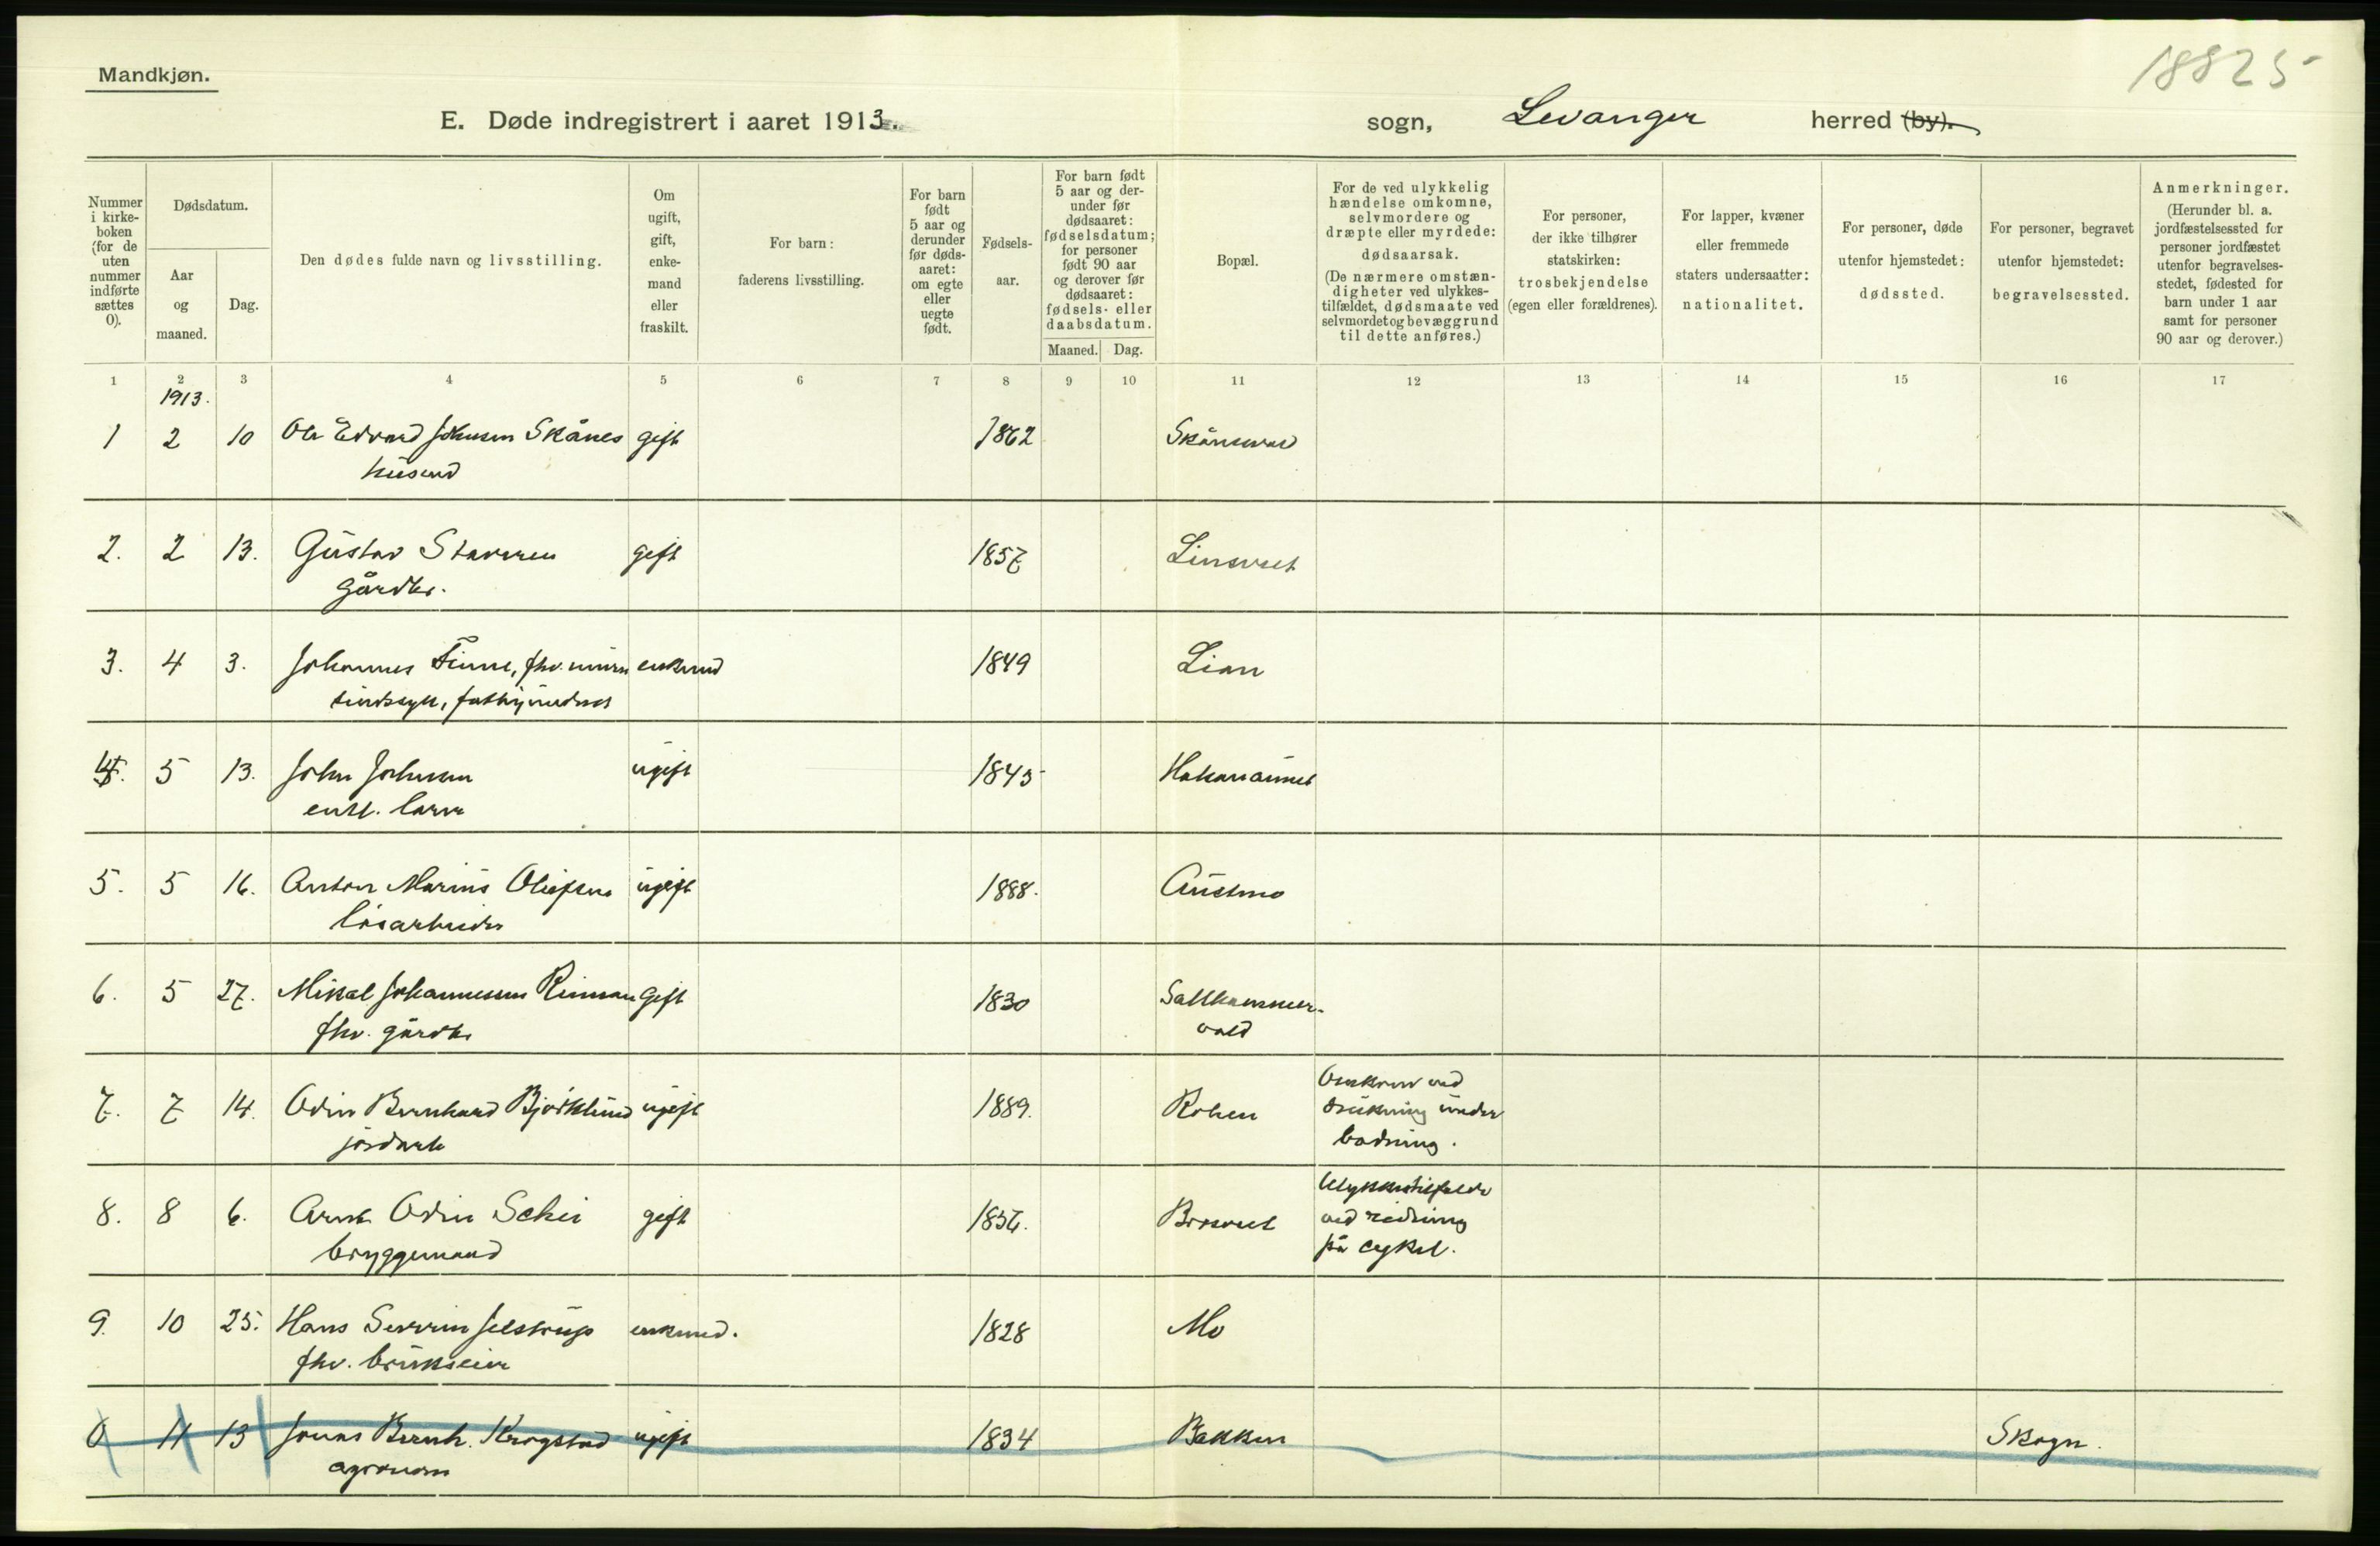 Mandkjøn.
18825
E. Døde indregistrert i aaret 1913.
sogn, Levanger herred (by).
Nummer i kirke-boken (for de uten nummer indførte sættes 0).
Dødsdatum.
Aar og maaned.
Dag.
Den dødes fulde navn og livsstilling.
Om ugift, gift, enke-mand eller fraskilt.
For barn: faderens livsstilling.
For barn født 5 aar og derunder før døds-aaret: om egte eller uegte født.
Fødsels-aar.
For barn født 5 aar og der-under før dødsaaret: fødselsdatum; for personer født 90 aar og derover før dødsaaret: fødsels- eller daabsdatum.
Maaned. Dag.
Bopæl.
For de ved ulykkelig hændelse omkomne, selvmordere og dræpte eller myrdede: dødsaarsak. (De nærmere omstæn-digheter ved ulykkes-tilfældet, dødsmaate ved selvmordet og bevæggrund til dette anføres.)
For personer, der ikke tilhører statskirken: trosbekjendelse (egen eller forældrenes).
For lapper, kvæner eller fremmede staters undersaatter: nationalitet.
For personer, døde utenfor hjemstedet: dødssted.
For personer, begravet utenfor hjemstedet: begravelsessted.
Anmerkninger. (Herunder bl. a. jordfæstelsessted for personer jordfæstet utenfor begravelses-stedet, fødested for barn under 1 aar samt for personer 90 aar og derover.)
1 2 3 4 5 6 7 8 9 10 11 12 13 14 15 16 17
1913.
1 2 10 Ole Edvard Johnsen Skånes gift 1862
husmd
2. 2 13. Gustav gift 1857
gårdbr.
3. 4 3. Johannes Finne, fhv. enkmd 1849 Lian
sindssyk,
4. 5 13. John Johnsen ugift 1845
5. 5 16. Anton Marius Olufsen ugift 1888. Austmo
løsarbeider
6. 5 27. Mikal Johannessen Rinnan gift 1830 Salthammer-
fhv. gårdbr vald
7. 7 14. Odin Bernhard Bjørklund ugift 1889. Omkom ved
jordarb drukning under
badning.
8. 8 6. Arnt Odin gift 1856. Ulykkestilfelde
bryggemand ved ridning
på cykel.
9. 10 25. Hans Severin Jelstrup enkmd. 1828 Mo
fhv. brukseier
0 11 13 Jonas Bernh. Krogstad ugift 1834 Bakken Skogn.
agronom